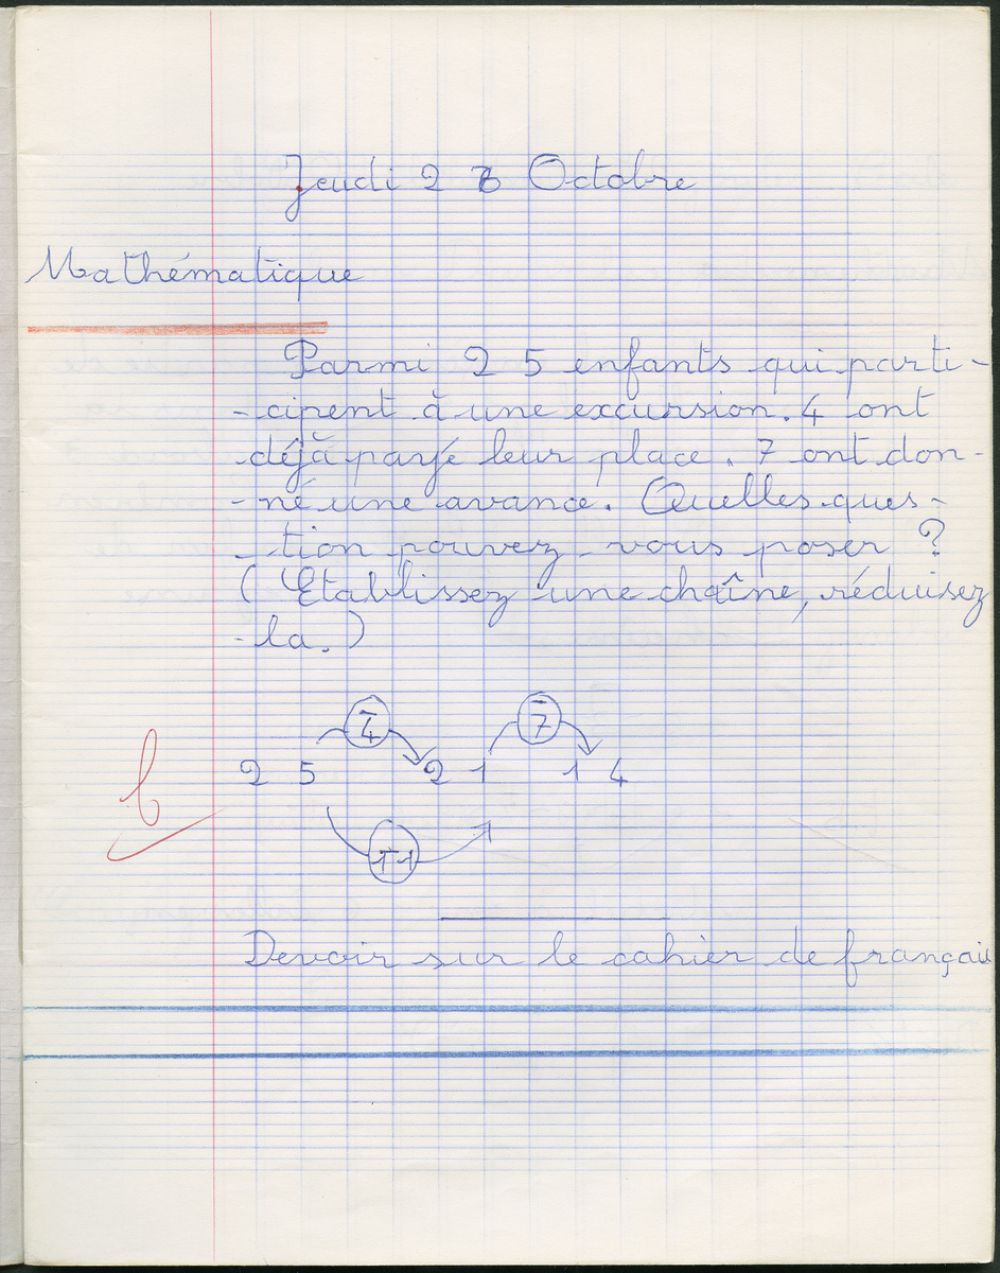 Jeudi 2 6 Octobre
Mathématique
Parmi 2 5 enfants qui parti-
-cipent à une excursion. 4 ont
déjà payé leur place. 7 ont don-
-né une avance. Quelles ques-
-tion pouvez-vous poser ?
( Etablissez une chaîne, réduisez
-la. )
-4 -7
2 5 2 1 1 4
-11
b
Devoir sur le cahier de français